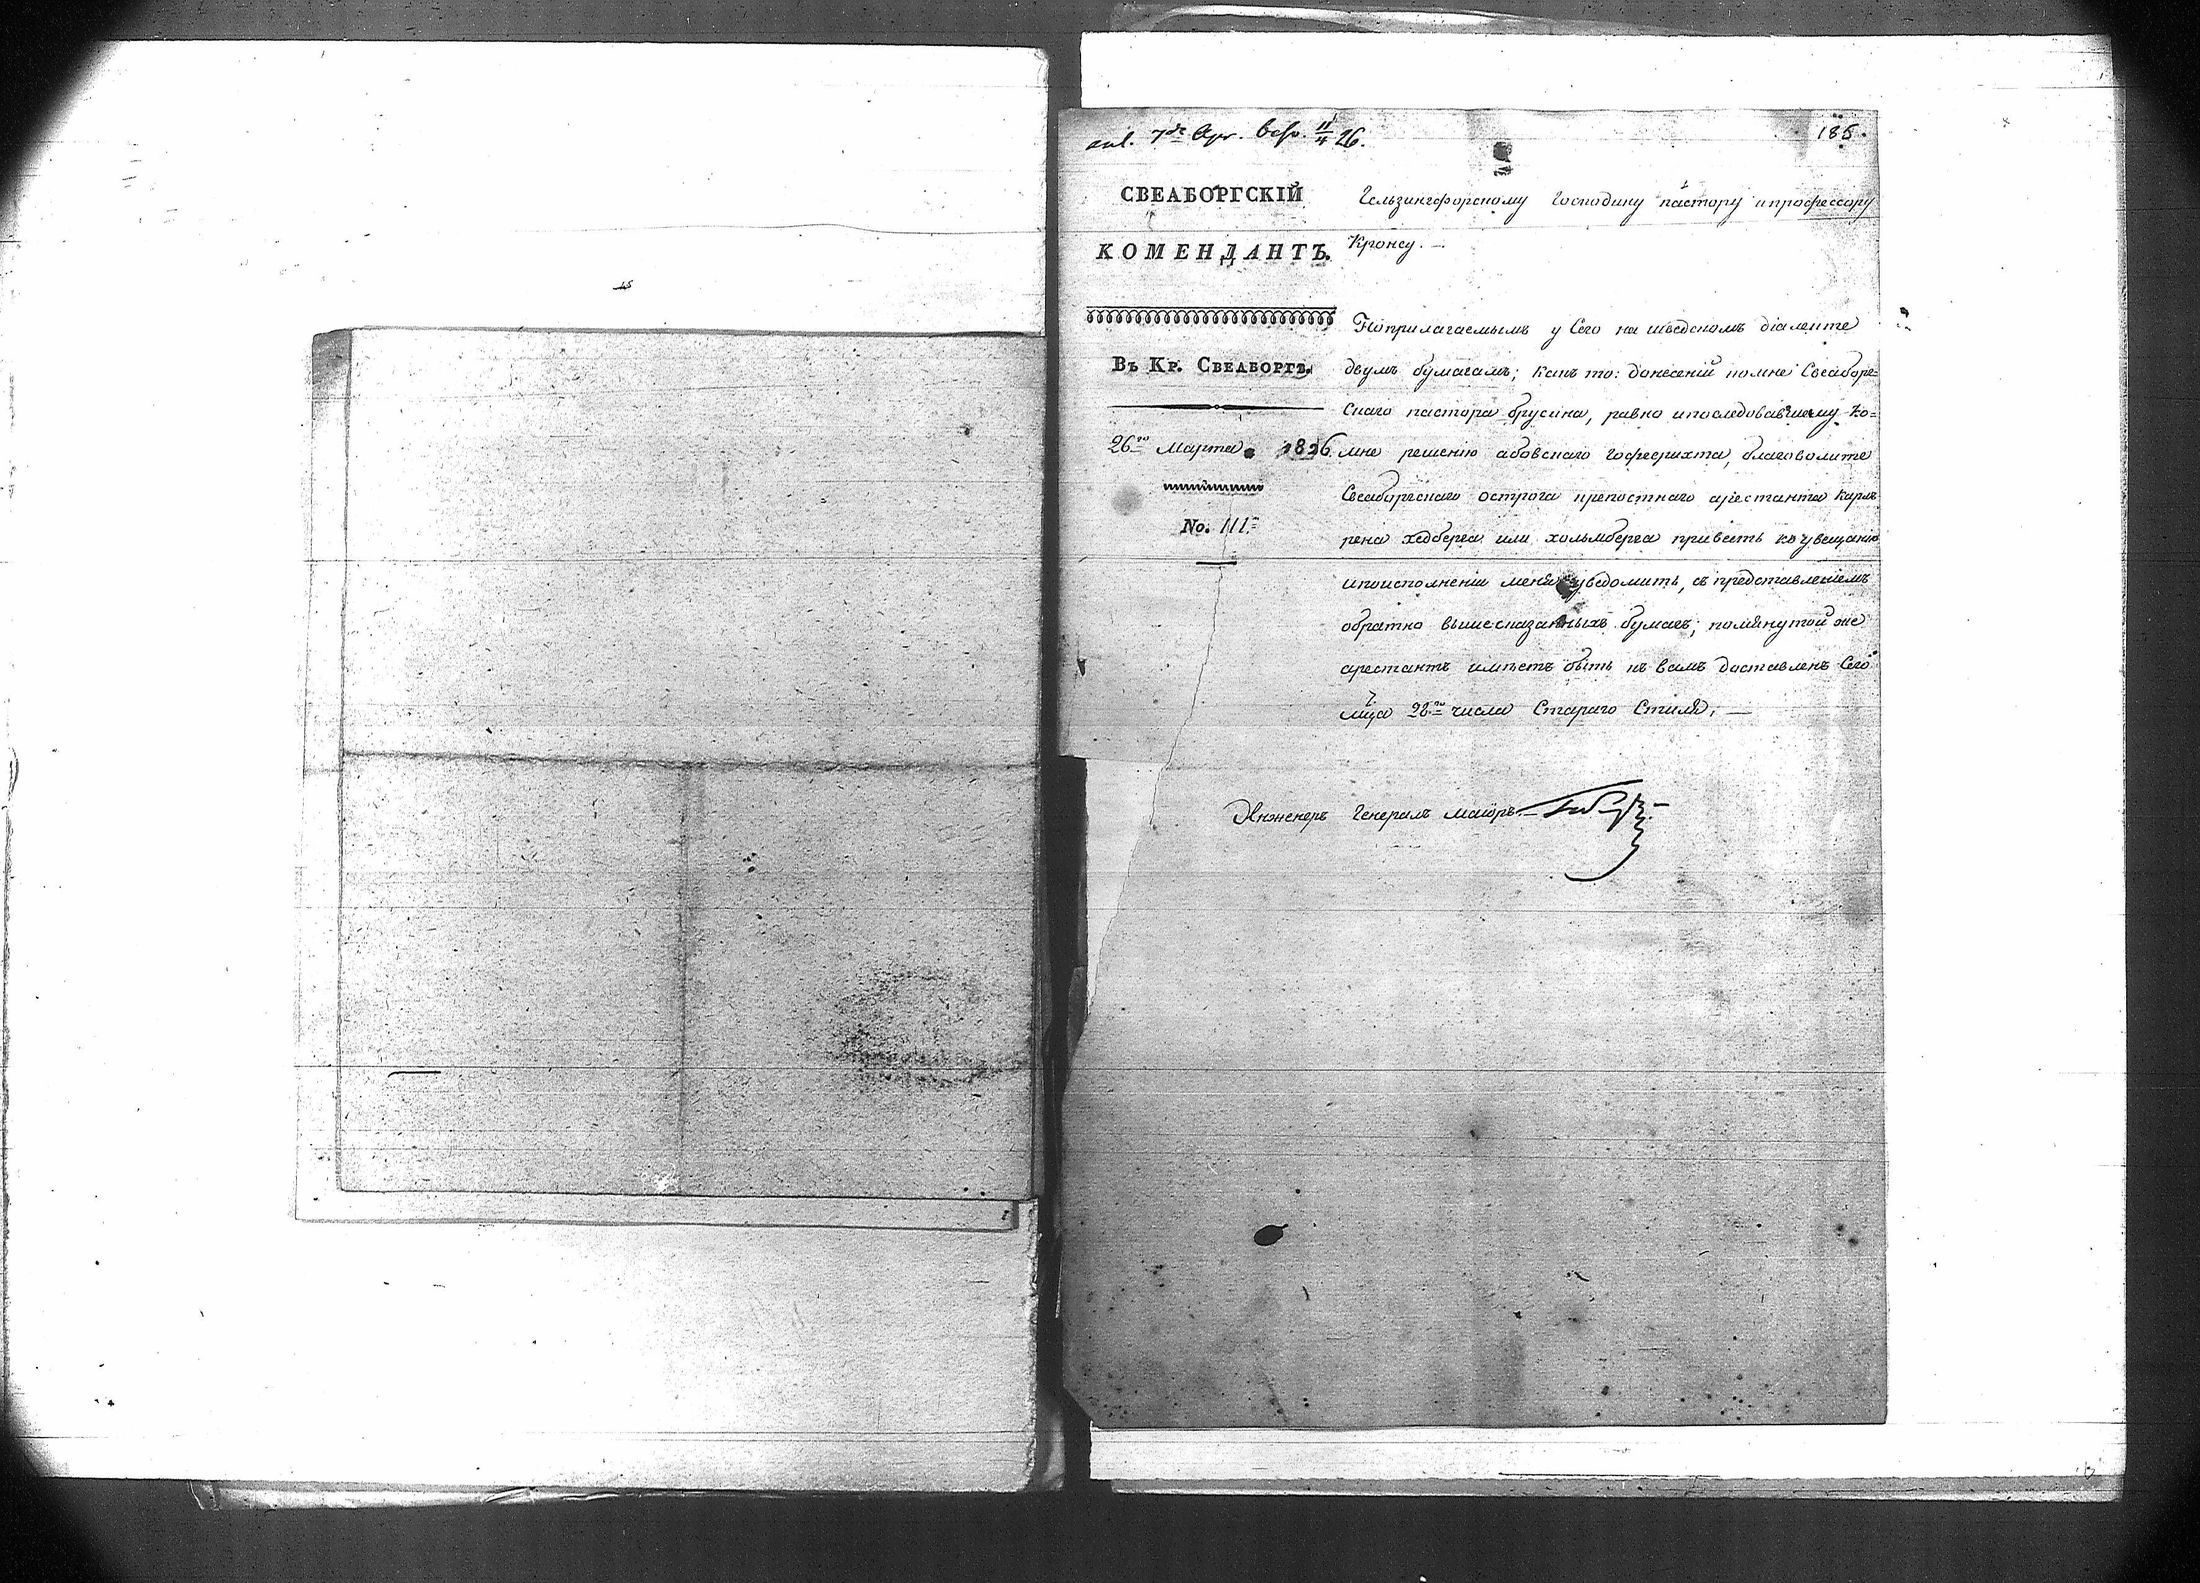 ank. 7de Apr. besv. 11/4 26.
185.
СВЕАБОРГСКІЙ
КОМЕНДАНТЪ.
Въ Кр. Свеаборгѣ.
26го Марта 1826.
No. 111.
Гельзингфорскому Господину пастору и профессору
Кронсу. —
По прилагаемымъ у Сего на шведскомъ діалекте
двумъ бумагамъ; какъ то: донесеній ко мне Свеаборг=
скаго пастора брусина, равно ипоследовавшему Ко=
мне решенію абовскаго Гофгерихта, благоволите
Свеаборгскаго острога крепостнаго арестанта Карла
рена хедберга или хольмберга привесть къ увещанію
ипоисполненіи меня уведомить, съ представленіемъ
обратно вышесказанныхъ бумагъ; помянутой же
арестантъ имѣетъ быть къ вамъ доставленъ Сего
мца 28го числа Стараго Стиля, —
Инженеръ Генералъ маіоръ